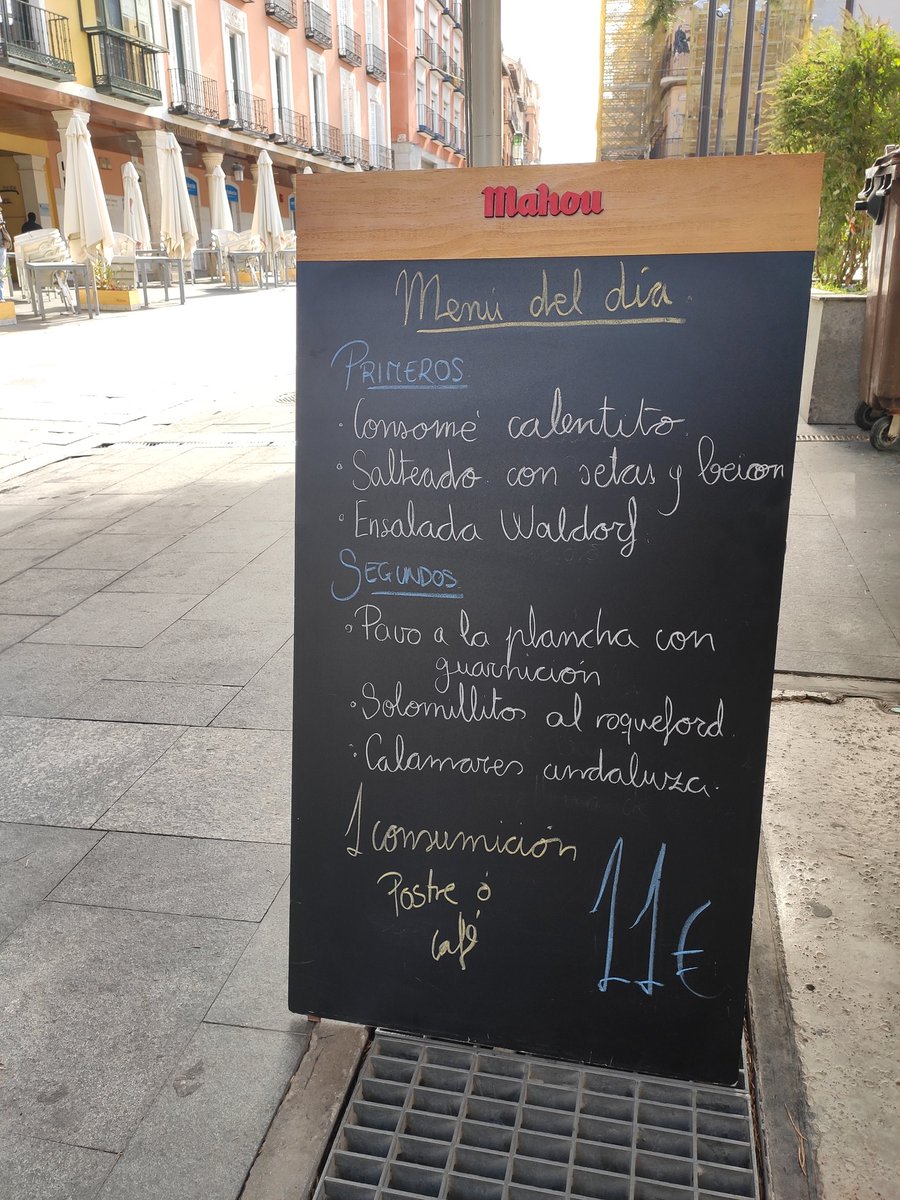 Mahou
Menú del día
PRIMEROS
· Consomé calentito.
· Salteado con setas y beicon
· Ensalada Waldorf
SEGUNDOS
· Pavo a la plancha con
guarnición
· Solomillitos al roqueford.
· Calamares andaluza.
1 consumición
Postre ó
café
11€